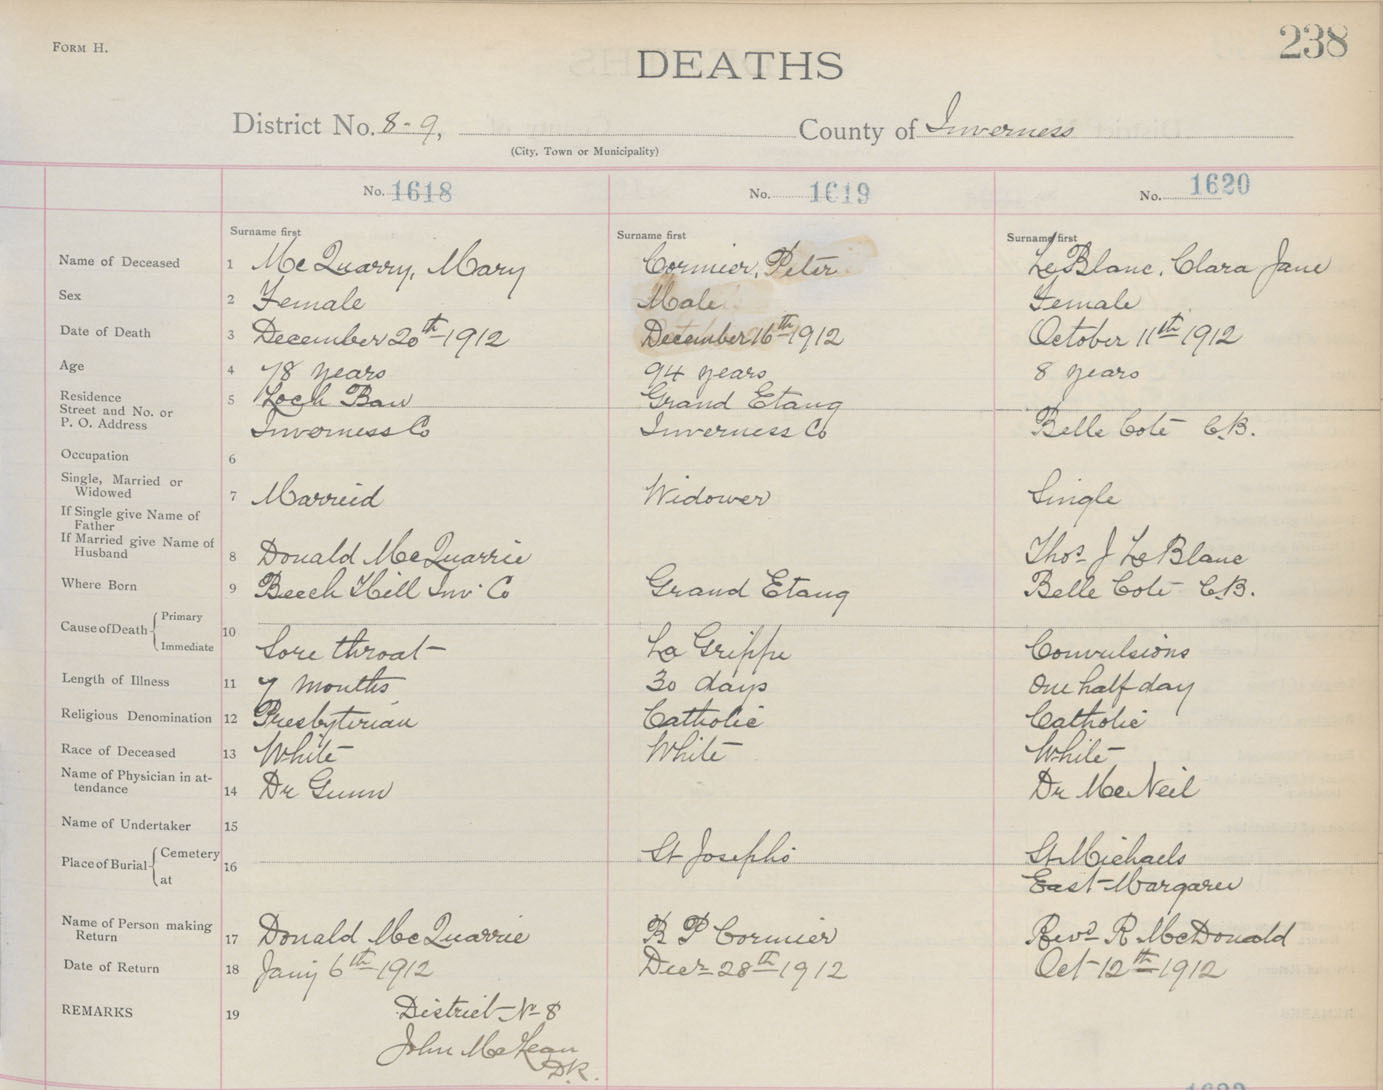 FORM H.
238
DEATHS
District No. 8-9, County of Inverness
(City, Town or Municipality)
No. 1618 No. 1619 No. 1620
Surname first Surname first Surname first
Name of Deceased 1 McQuarry, Mary Cormier, Peter LeBlanc, Clara Jane
Sex 2 Female Male Female
Date of Death 3 December 20th 1912 December 16th 1912 October 11th 1912
Age 4 78 years 94 years 8 years
Residence 5 Loch Ban Grand Etang
Street and No. or
P. O. Address Inverness Co Inverness Co Belle Cote C.B.
Occupation 6
Single, Married or
Widowed 7 Marreid Widower Single
If Single give Name of
Father
If Married give Name of
Husband 8 Donald McQuarrie Thos J LeBlanc
Where Born 9 Beech Hill Inv. Co Grand Etang Belle Cote C.B.
Cause of Death Primary
10
Immediate Sore throat La Grippe Convulsions
Length of Illness 11 7 months 30 days One half day
Religious Denomination 12 Presbyterian Catholic Catholic
Race of Deceased 13 White White White
Name of Physician in at-
tendance 14 Dr Gunn Dr McNeil
Name of Undertaker 15
Place of Burial Cemetery 16 St Josephs St Michaels
at East Margaree
Name of Person making
Return 17 Donald McQuarrie B P Cormier Revd R McDonald
Date of Return 18 Jany 6th 1912 Decr 28th 1912 Oct 12th 1912
REMARKS 19 District No 8
John McLean
D.R.